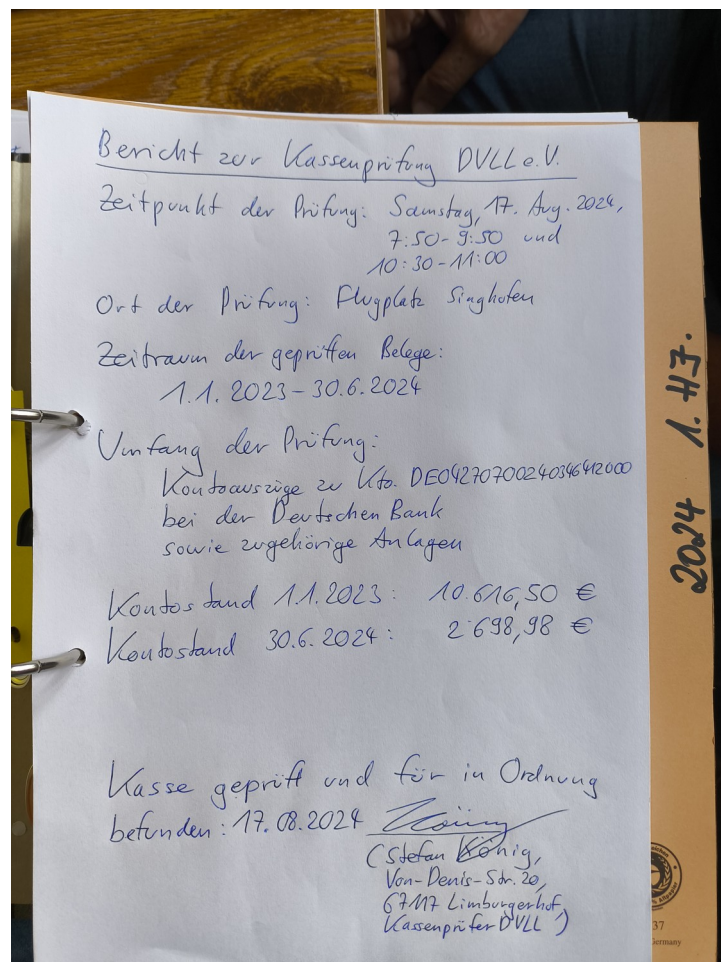 Bericht zur Kassenprüfung DVLL e.V.
Zeitpunkt der Prüfung: Samstag, 17. Aug. 2024,
7:50-9:50 und
10:30-11:00
Ort der Prüfung: Flugplatz Singhofen
Zeitraum der geprüften Belege:
1.1.2023-30.6.2024
Umfang der Prüfung:
Kontoauszüge zu Kto. DE04270700240346412000
bei der Deutschen Bank
sowie zugehörige Anlagen
Kontostand 1.1.2023: 10.616,50 €
Kontostand 30.6.2024: 2.698,98 €
Kasse geprüft und für in Ordnung
befunden: 17.08.2024
(Stefan König,
Von-Denis-Str. 20,
67117 Limburgerhof,
Kassenprüfer DVLL)
2024 1. HJ.
37
Germany